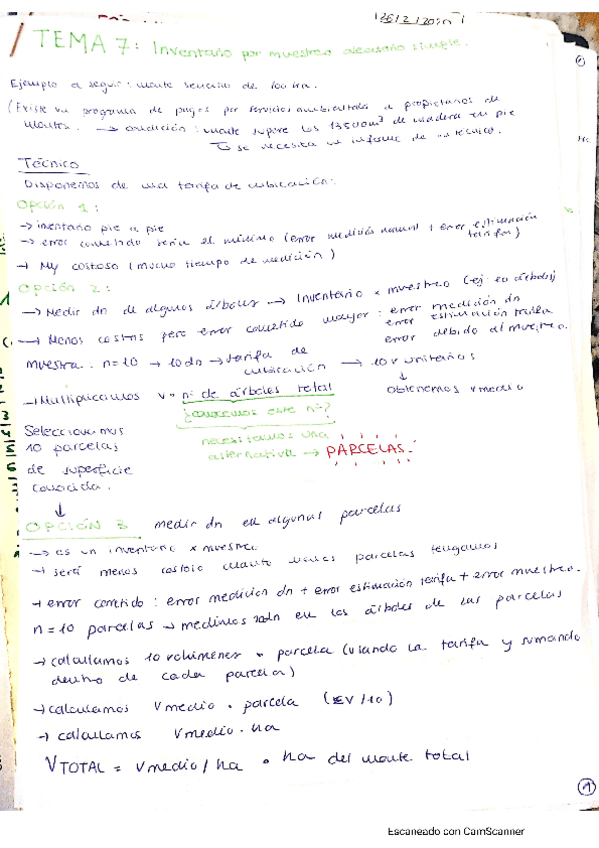 TEMA 7: Inventario por muestreo aleatorio simple.
Ejemplo a seguir: monte de 100 ha.
(Existe un programa de pagos por servicios ambientales a propietarios de
montes. → condición: monte supere los 13500 m³ de madera en pie
se necesita un informe de un técnico.
Técnico
Disponemos de una tarifa de cubicación:
Opción 1:
→ inventario pie a pie
→ error cometido sería el mínimo (error medición normal + error estimación tarifa)
→ Muy costoso (mucho tiempo de medición)
Opción 2:
→ Medir dn de algunos árboles → Inventario x muestreo (ej: 10 árboles)
→ Menos costoso pero error cometido mayor: error medición dn
error estimación tarifa
error debido al muestreo.
muestra. n=10 → 10 dn → tarifa de cubicación → 10 v unitarios
↓
obtenemos v medio
→ Multiplicamos v · nº de árboles total
¿conocemos este nº?
necesitamos una
alternativa → PARCELAS.
Seleccionamos
10 parcelas
de superficie
conocida.
↓
OPCIÓN 3 medir dn en algunas parcelas
→ es un inventario x muestreo
→ será menos costoso cuanto menos parcelas tengamos
→ error cometido: error medición dn + error estimación tarifa + error muestreo.
n=10 parcelas → medimos dn en los árboles de las parcelas
→ calculamos 10 volúmenes · parcela (usando la tarifa y sumando
dentro de cada parcela)
→ calculamos Vmedio · parcela (ΣV/10)
→ calculamos Vmedio · ha
VTOTAL = Vmedio/ha · ha del monte total
1
Escaneado con CamScanner